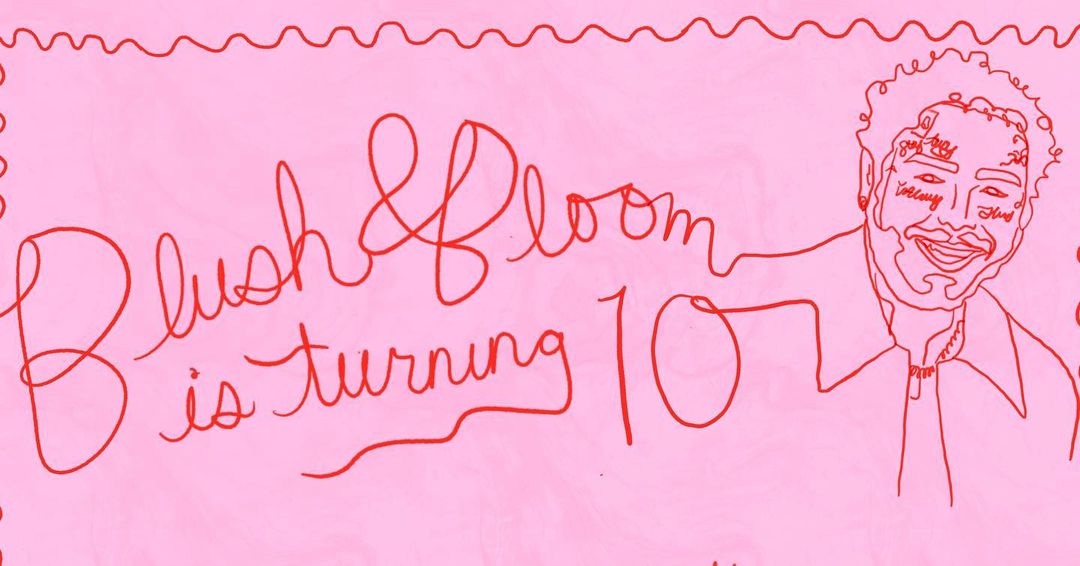 Blush & Bloom
is turning 10